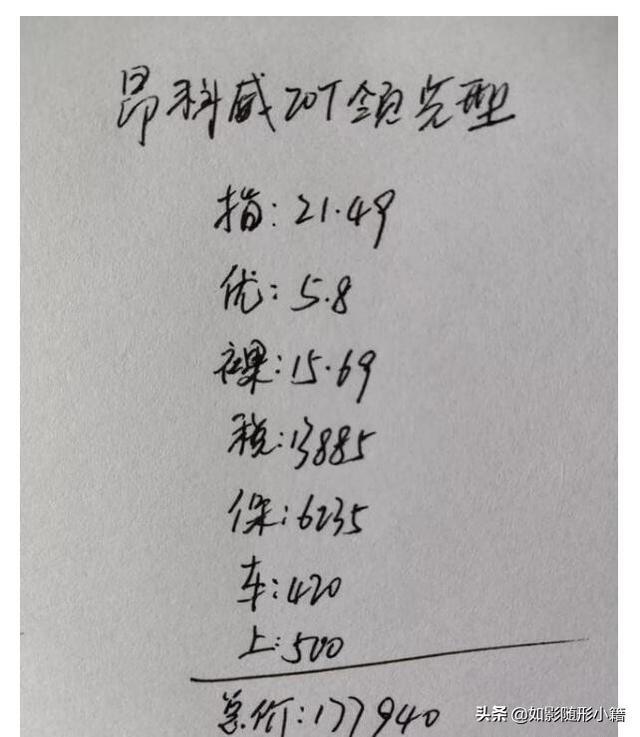 昂科威20T领先型
指:21.49
优:5.8
裸:15.69
税:13885
保:6235
车:420
上:500
总价:177940
头条 @如影随形小籍